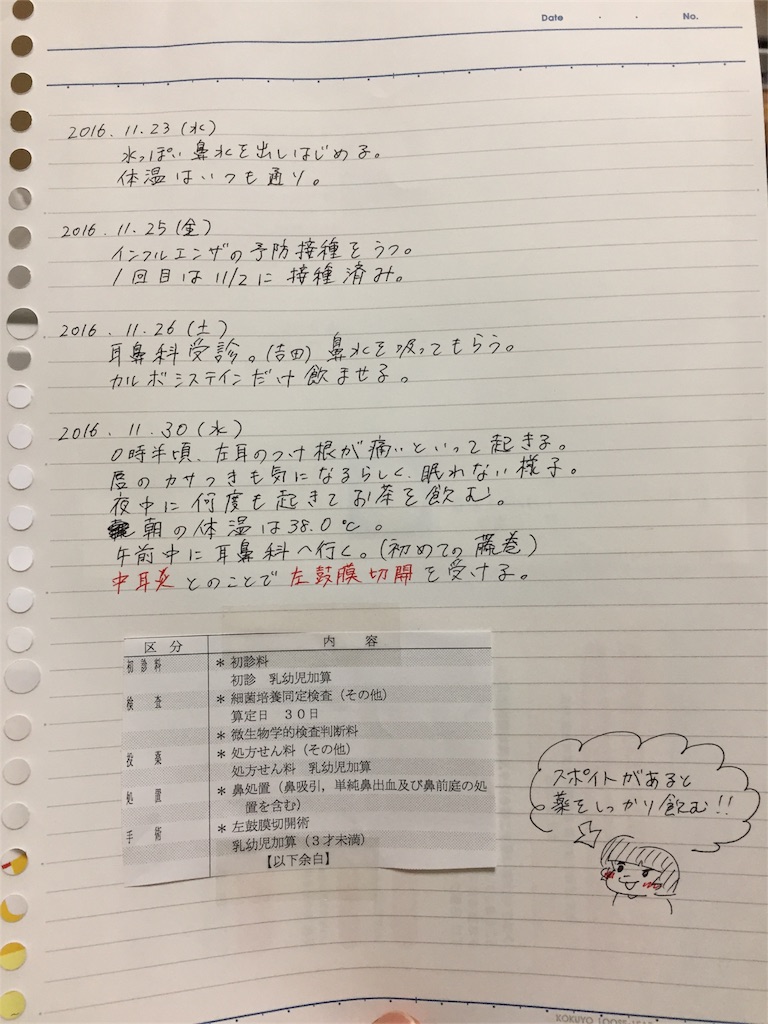 Date ・ ・ No.
2016. 11.23 (水)
水っぽい鼻水を出しはじめる。
体温はいつも通り。
2016. 11.25 (金)
インフルエンザの予防接種をうつ。
1回目は11/2に接種済み。
2016. 11.26 (土)
耳鼻科受診。(吉田) 鼻水を吸ってもらう。
カルボシステインだけ飲ませる。
2016. 11.30 (水)
0時半頃、左耳のつけ根が痛いといって起きる。
唇のカサつきも気になるらしく、眠れない様子。
夜中に何度も起きてお茶を飲む。
朝の体温は38.0℃。
午前中に耳鼻科へ行く。(初めての藤巻)
中耳炎とのことで左鼓膜切開を受ける。
区 分 内 容
初 診 料 * 初診料
初診 乳幼児加算
検 査 * 細菌培養同定検査(その他)
算定日 30日
* 微生物学的検査判断料
投 薬 * 処方せん料(その他)
処方せん料 乳幼児加算
処 置 * 鼻処置(鼻吸引,単純鼻出血及び鼻前庭の処
置を含む)
手 術 * 左鼓膜切開術
乳幼児加算(3才未満)
【以下余白】
スポイトがあると
薬をしっかり飲む!!
KOKUYO LOOSE-LEAF